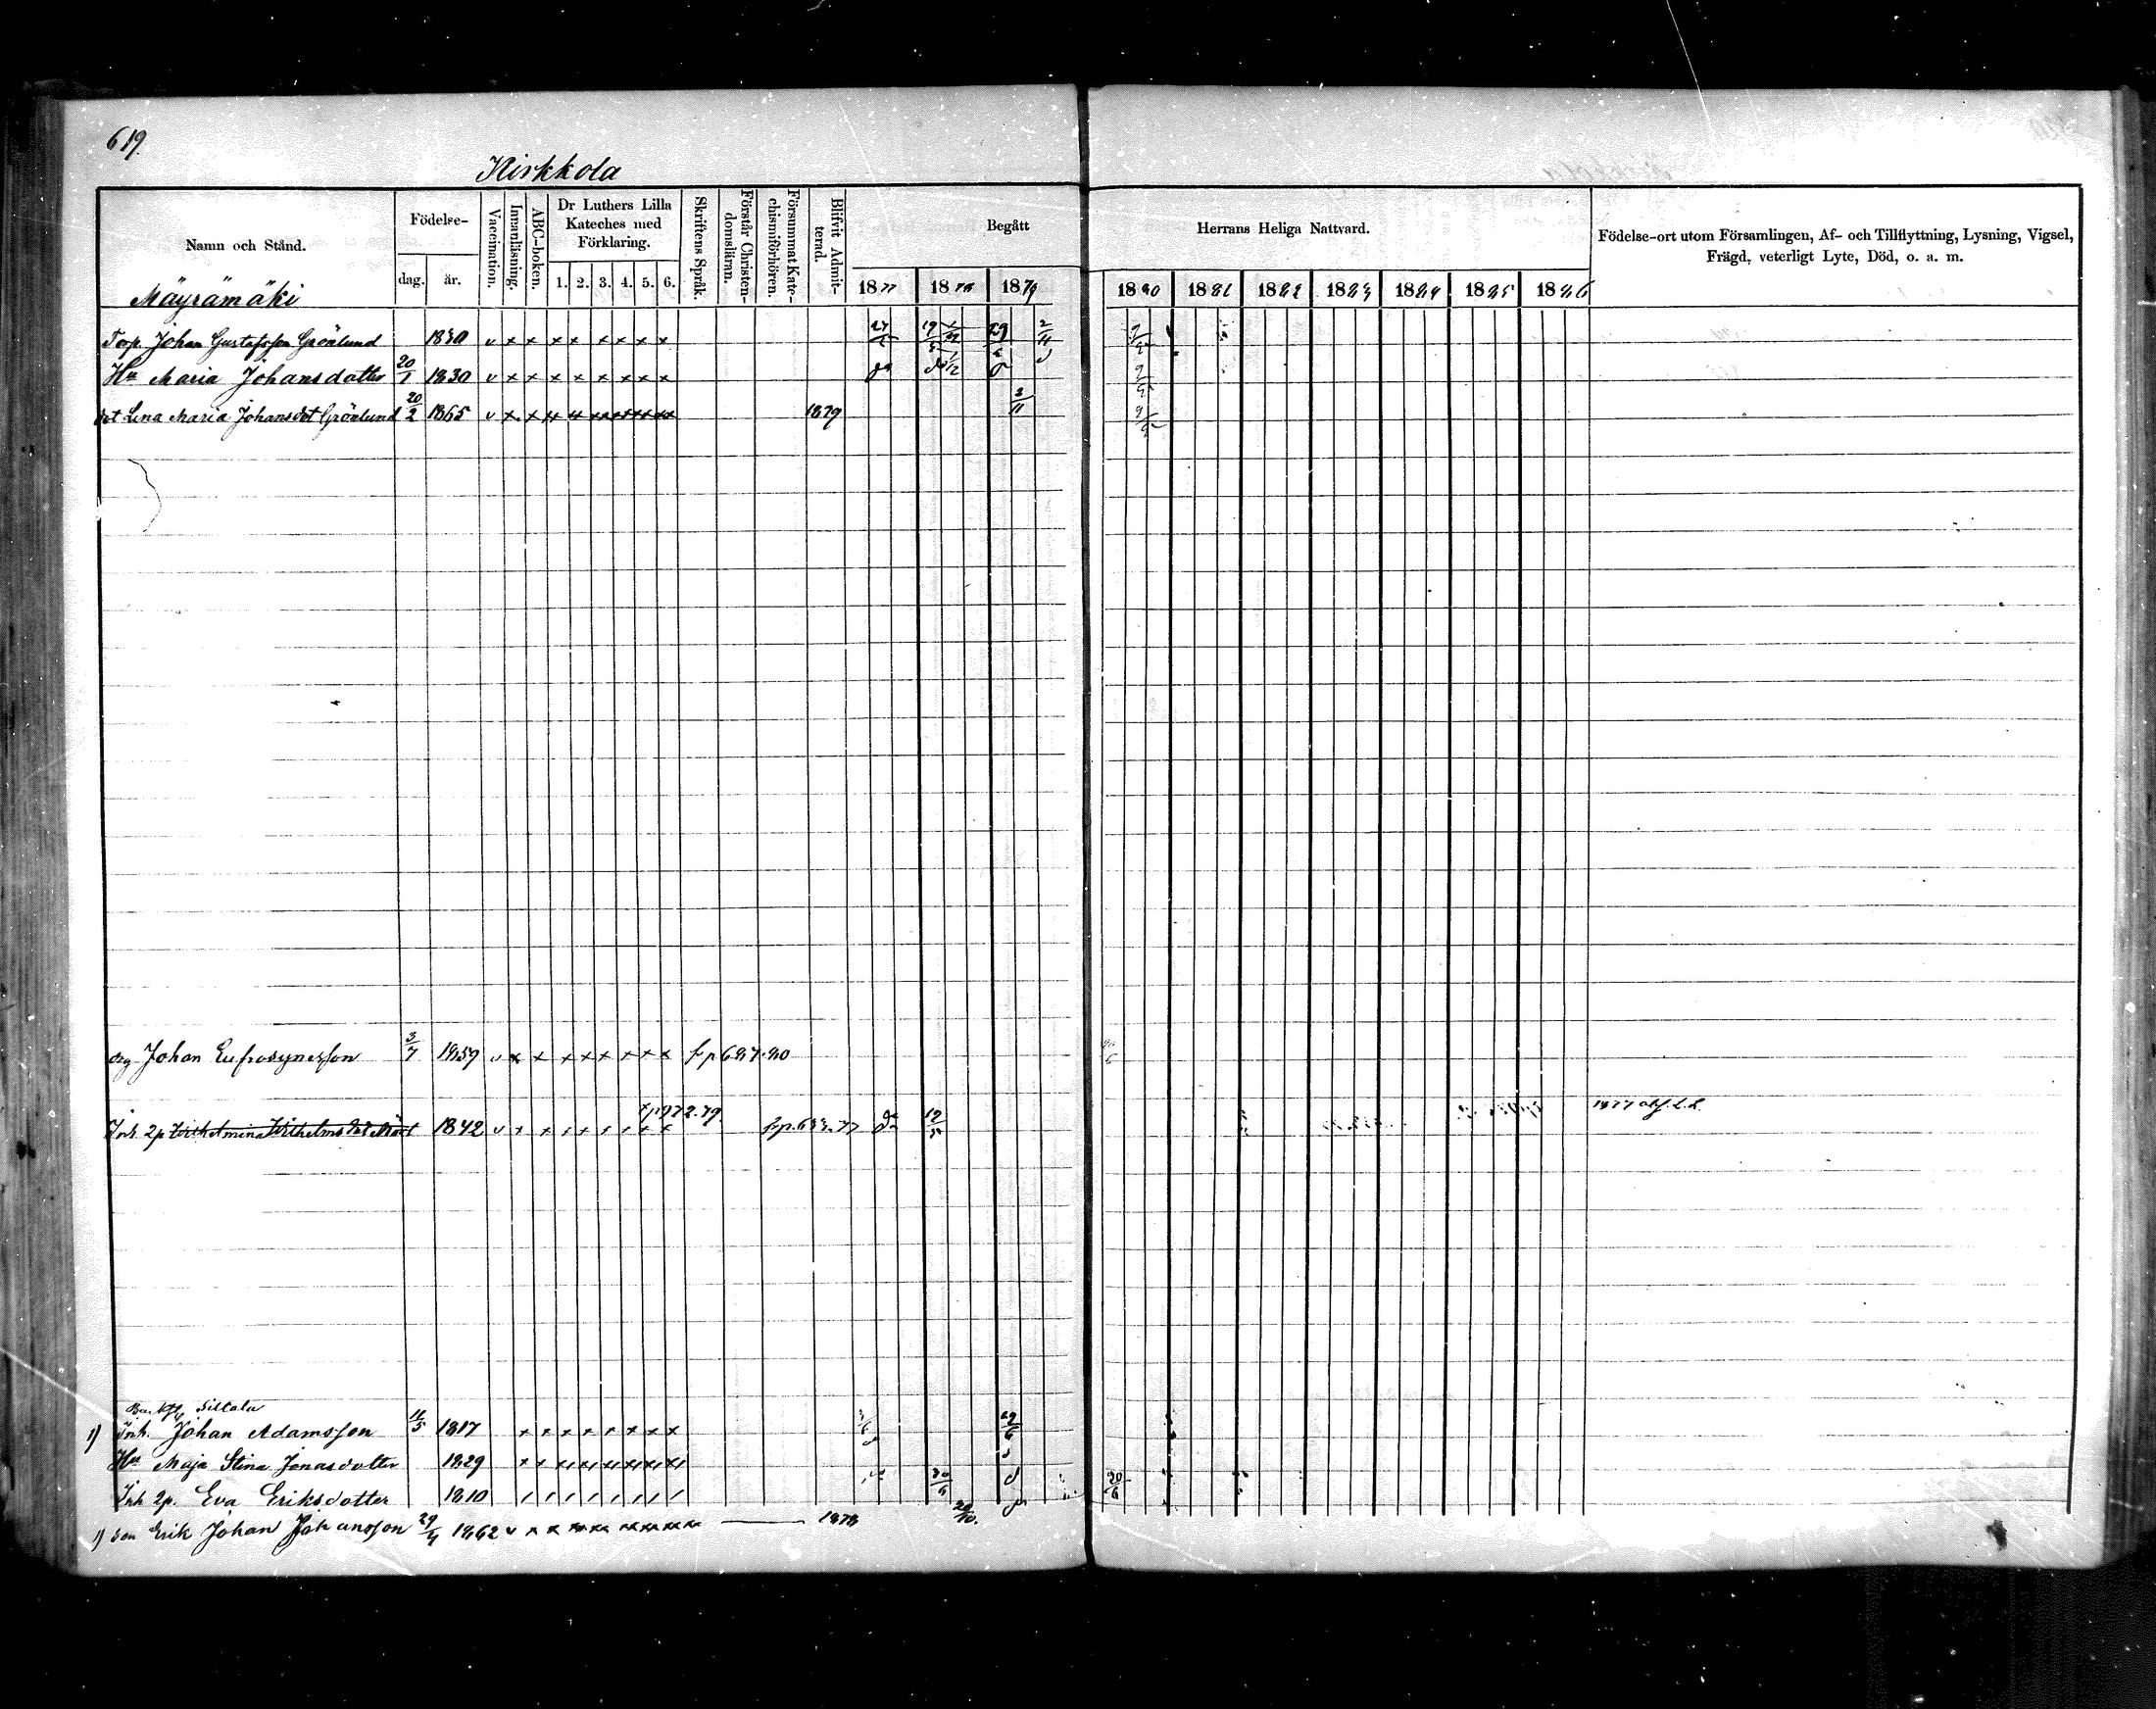 619.
Kirkkola
Namn och Stånd.
Födelse-
dag.
år.
Vaccination.
Innanläsning.
ABC-boken.
Dr Luthers Lilla
Kateches med
Förklaring.
1. 2. 3. 4. 5. 6.
Skriftens Språk.
Förstår Christen-
domsläran.
Försummat Kate-
chismiförhören.
Blifvit Admit-
terad.
Begått
Herrans Heliga Nattvard.
1877 1878 1879 1880 1881 1882 1883 1884 1885 1886
Födelse-ort utom Församlingen, Af- och Tillflyttning, Lysning, Vigsel,
Frägd, veterligt Lyte, Död, o. a. m.
Mäyrämäki
Torp. Johan Gustafsson Grönlund 1830 v x x x x x x x x 29 2/11
Hu Maria Johansdotter 20/1 1830 v x x x x x x x x
dot Lina Maria Johansdot Grönlund 20/2 1865 v x x 1879 2/11
drg Johan Eufrosynesson 3/7 1859 v x x x x x x x x fr p 687.80
Inh. 2p Wilhelmina Wilhelmsdot 1842 v x x x x x x x x fr p. 633.77 do 19/5 1877
Backst. Siltala
1) Inh. Johan Adamsson 11/5 1817 x x x x x x x x 29/6
Hu Maja Stina Jonasdotter 1829 x x
Inh 2p. Eva Eriksdotter 1810 30/6 d 20/6
1) Son Erik Johan Johansson 29/4 1862 v x x 1878 20/10.